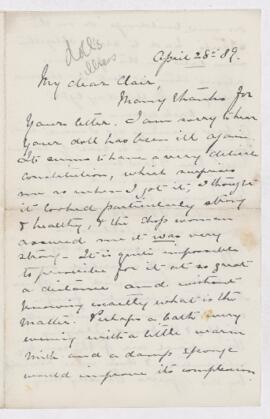 doll's
illness
April 28th 89.
My dear Clair,
Many thanks for
Your letter. I am sorry to hear
Your doll has been ill again
It seems to have a very delicate
constitution, which surprises
me as when I got it, I thought
it looked particularly strong
& healthy, & the shop woman
assured me it was very
strong – It is quite impossible
to prescribe for it at so great
a distance and without
knowing exactly what is the
matter. Perhaps a bath every
evening with a little warm
milk and a damp sponge
would improve its complexion